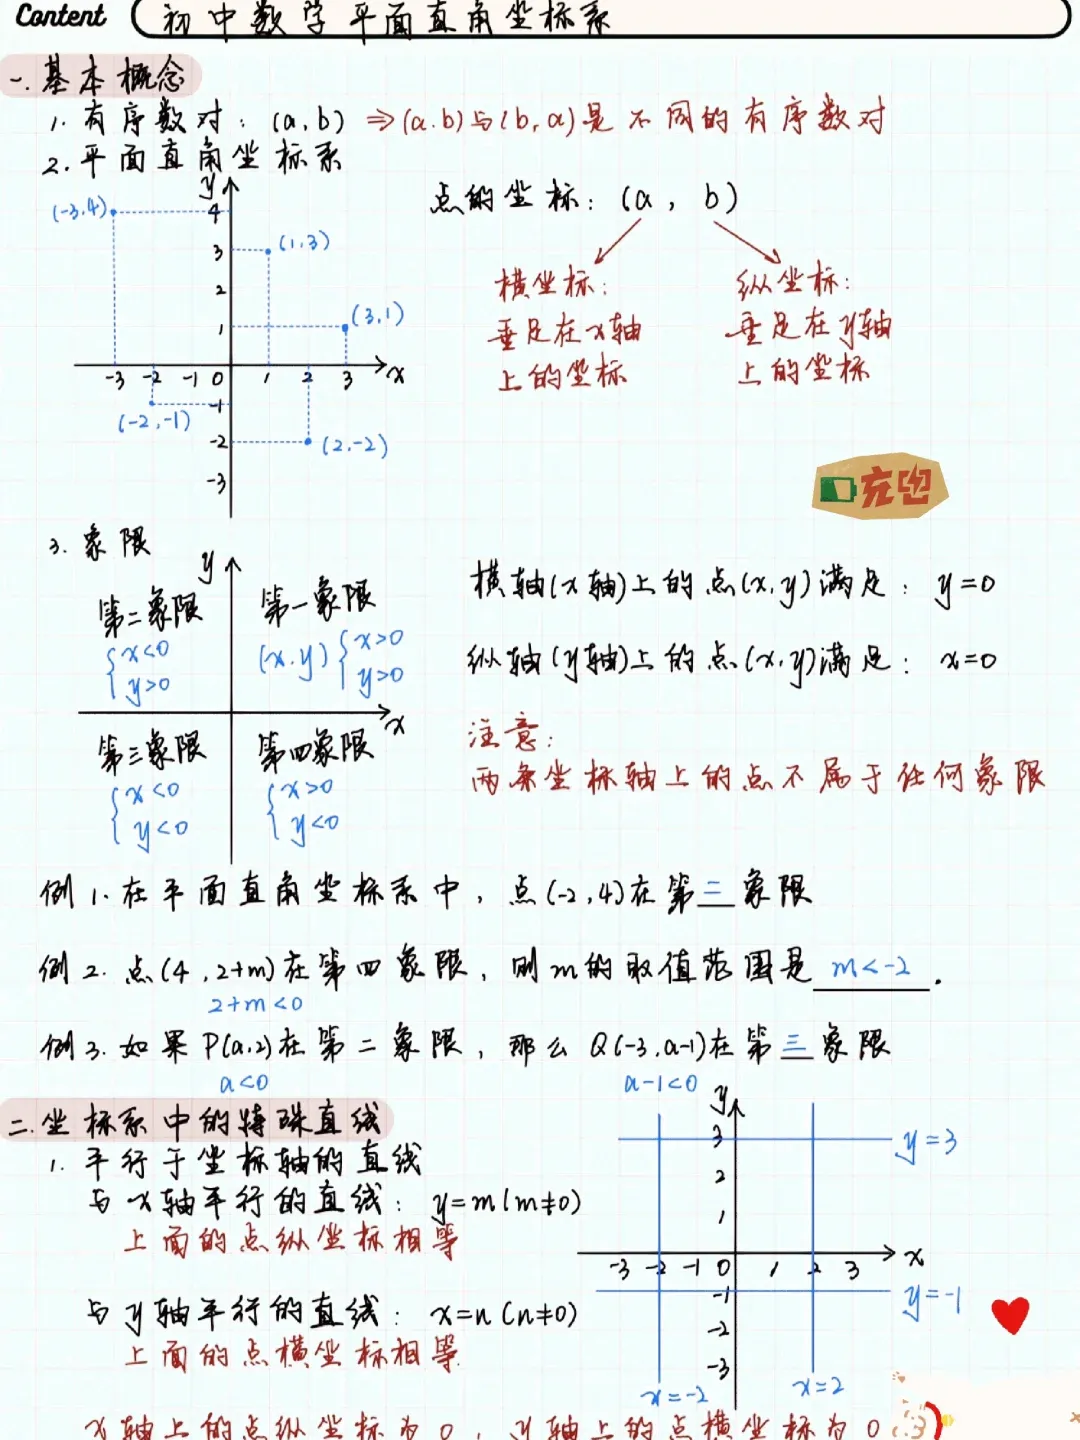 Content 初中数学平面直角坐标系
一.基本概念
1.有序数对：(a,b) ⇒(a.b)与(b,a)是不同的有序数对
2.平面直角坐标系
y
4
3
2
1
-3 -2 -1 0 1 2 3 x
-1
-2
-3
(-3,4)
(1,3)
(3,1)
(-2,-1)
(2,-2)
点的坐标：(a, b)
横坐标：
垂足在x轴
上的坐标
纵坐标：
垂足在y轴
上的坐标
充电
3.象限
y
第二象限
x<0
y>0
第一象限
(x.y) x>0
y>0
x
第三象限
x<0
y<0
第四象限
x>0
y<0
横轴(x轴)上的点(x,y)满足：y=0
纵轴(y轴)上的点(x,y)满足：x=0
注意：
两条坐标轴上的点不属于任何象限
例1.在平面直角坐标系中，点(-2,4)在第二象限
例2.点(4,2+m)在第四象限，则m的取值范围是 m<-2 .
2+m<0
例3.如果P(a,2)在第二象限，那么Q(-3,a-1)在第三象限
a<0
a-1<0
二.坐标系中的特殊直线
1.平行于坐标轴的直线
与x轴平行的直线：y=m(m≠0)
上面的点纵坐标相等
与y轴平行的直线：x=n(n≠0)
上面的点横坐标相等
y
3
2
1
-3 -2 -1 0 1 2 3 x
-1
-2
-3
y=3
y=-1
x=-2
x=2
x轴上的点纵坐标为0，y轴上的点横坐标为0